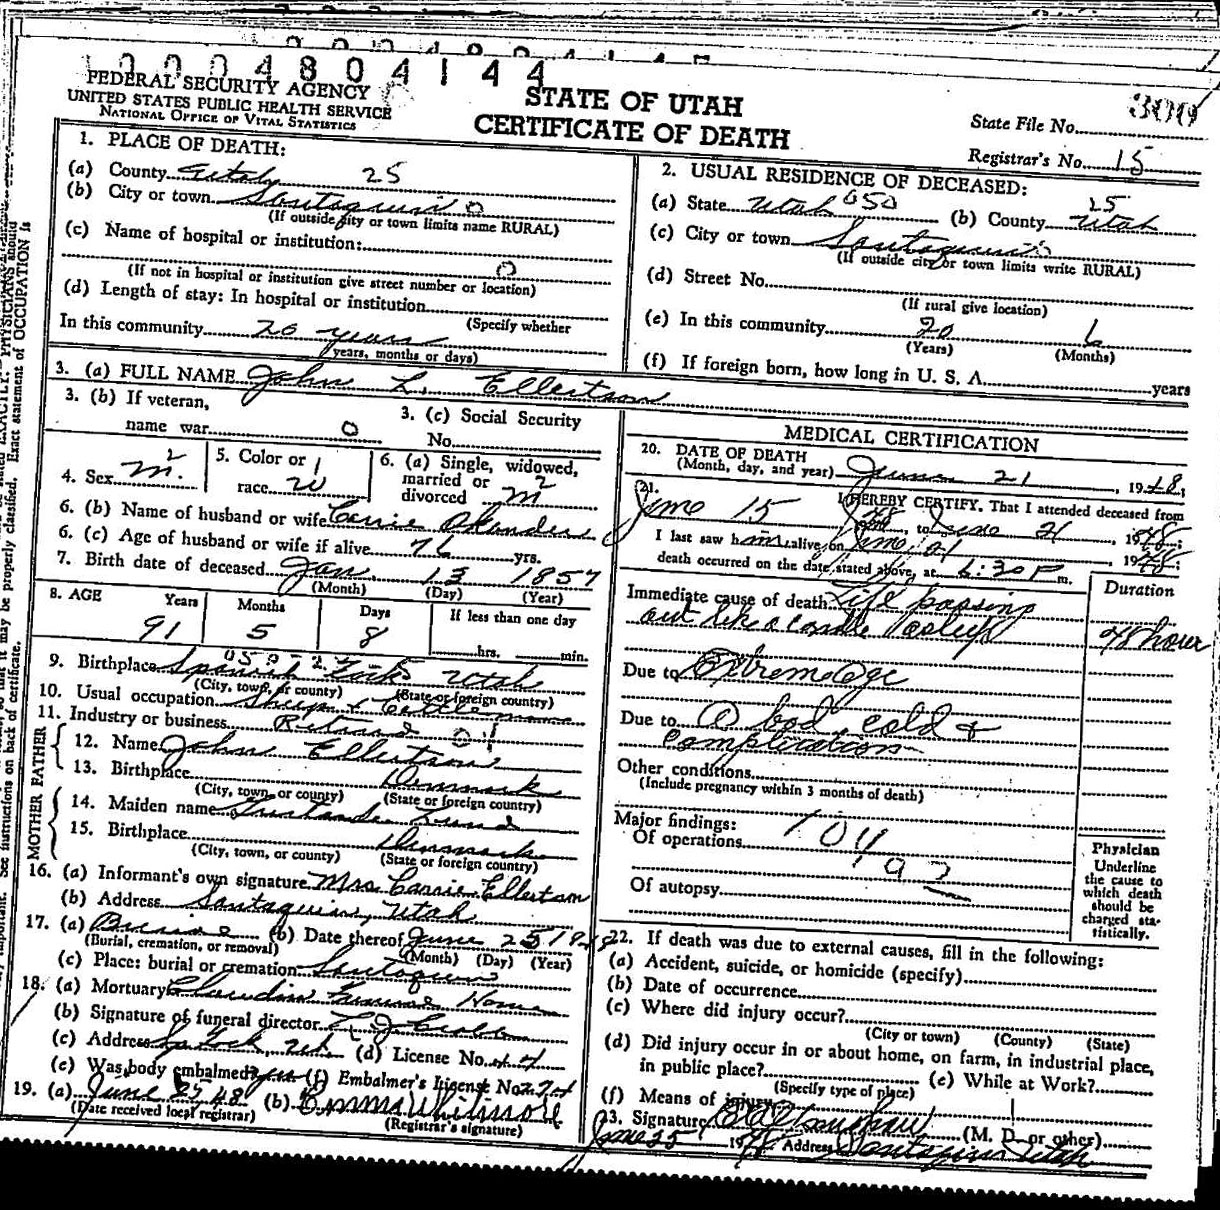 1000 4804144
FEDERAL SECURITY AGENCY
UNITED STATES PUBLIC HEALTH SERVICE
NATIONAL OFFICE OF VITAL STATISTICS
STATE OF UTAH
CERTIFICATE OF DEATH
State File No. 300
Registrar's No. 15
1. PLACE OF DEATH:
(a) County Utah 25
(b) City or town Santaquin 0
(If outside city or town limits name RURAL)
(c) Name of hospital or institution:
0
(If not in hospital or institution give street number or location)
(d) Length of stay: In hospital or institution
(Specify whether
In this community 20 years
years, months or days)
2. USUAL RESIDENCE OF DECEASED:
(a) State Utah 050 (b) County Utah 25
(c) City or town Santaquin 0
(If outside city or town limits write RURAL)
(d) Street No.
(If rural give location)
(e) In this community 20 6
(Years) (Months)
(f) If foreign born, how long in U. S. A. years
3. (a) FULL NAME John L. Ellertson
3. (b) If veteran,
name war 0
3. (c) Social Security
No.
4. Sex M. 2
5. Color or 1
race W
6. (a) Single, widowed,
married or 2
divorced M
6. (b) Name of husband or wife Carrie
6. (c) Age of husband or wife if alive 76 yrs.
7. Birth date of deceased Jan. 13 1857
(Month) (Day) (Year)
8. AGE Years Months Days If less than one day
91 5 8 hrs. min.
9. Birthplace Spanish Fork Utah
(City, town, or county) (State or foreign country)
10. Usual occupation Sheep & Cattleman
11. Industry or business Retired 01
FATHER
12. Name John Ellertson
13. Birthplace Denmark
(City, town, or county) (State or foreign country)
MOTHER
14. Maiden name Lund
15. Birthplace Denmark
(City, town, or county) (State or foreign country)
16. (a) Informant's own signature Mrs Carrie Ellertson
(b) Address Santaquin, Utah
17. (a) Burial (b) Date thereof June 25 1948
(Burial, cremation, or removal) (Month) (Day) (Year)
(c) Place: burial or cremation Santaquin
18. (a) Mortuary Claudin Funeral Home
(b) Signature of funeral director
(c) Address Sp Fork, Ut. (d) License No. 44
(e) Was body embalmed? yes (f) Embalmer's License No. 274
19. (a) June 25 48 (b) Emma Whitmore
(Date received local registrar) (Registrar's signature)
MEDICAL CERTIFICATION
20. DATE OF DEATH
(Month, day, and year) June 21, 1948;
21. I HEREBY CERTIFY, That I attended deceased from
June 15 1948, to June 21, 1948;
I last saw him alive on June 21, 1948;
death occurred on the date stated above, at 6:30 P m.
Duration
Immediate cause of death Life passing
out like a candle asleep
48 hour
Due to Extreme age
Due to A bad cold &
complication
Other conditions
(Include pregnancy within 3 months of death)
Major findings:
Of operations
Of autopsy
Physician
Underline
the cause to
which death
should be
charged sta-
tistically.
22. If death was due to external causes, fill in the following:
(a) Accident, suicide, or homicide (specify)
(b) Date of occurrence
(c) Where did injury occur?
(City or town) (County) (State)
(d) Did injury occur in or about home, on farm, in industrial place,
in public place? (e) While at Work?
(Specify type of place)
(f) Means of injury
23. Signature (M. D. or other)
June 25 1948 Address Santaquin Utah